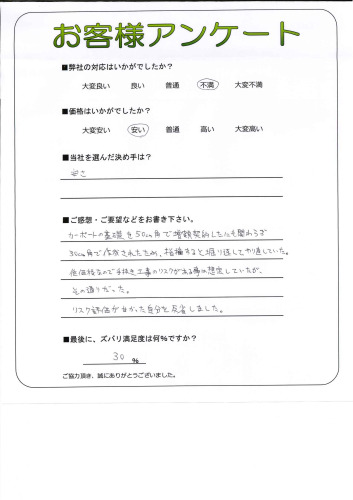 お客様アンケート
■弊社の対応はいかがでしたか?
大変良い 良い 普通 不満 大変不満
■価格はいかがでしたか?
大変安い 安い 普通 高い 大変高い
■当社を選んだ決め手は?
安さ
■ご感想・ご要望などをお書き下さい。
カーポートの基礎を50cm角で増額契約したにも関わらず
30cm角で作成されたため、指摘すると掘り返してやり直していた。
低価格なので手抜き工事のリスクがある事の想定していたが、
その通りだった。
リスク評価が甘かった自分を反省しました。
■最後に、ズバリ満足度は何%ですか?
30 %
ご協力頂き、誠にありがとうございました。